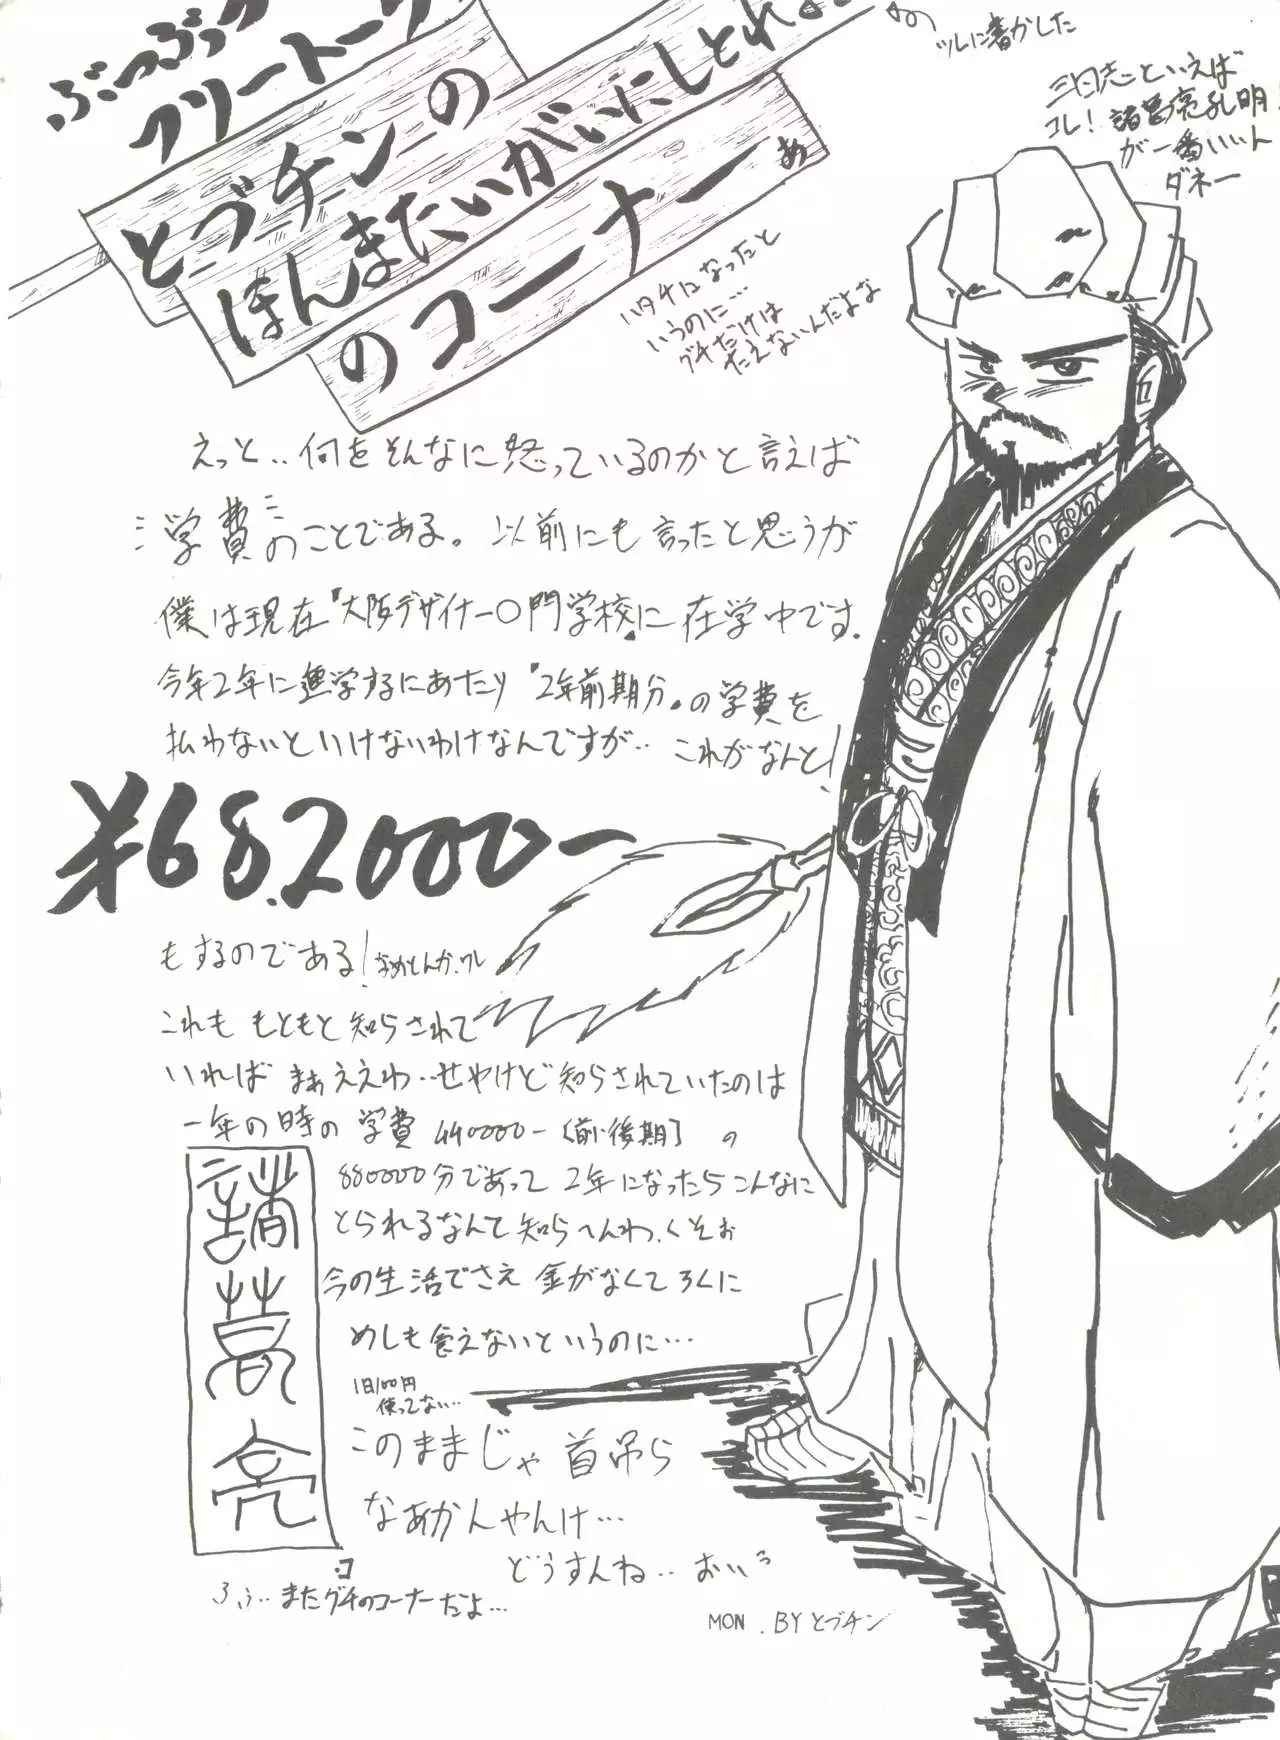 ぶつぶつ
フリートーク
とづチンの
ほんまたいがいにしとれよ
のコーナーぁ
ツルに書かした
三国志といえば
コレ！諸葛亮孔明！
が一番いいん
ダネー
ハタチになったと
いうのに…
グチだけは
たえないんだよな
えっと‥何をそんなに怒っているのかと言えば
学費のことである。以前にも言ったと思うが
僕は現在『大阪デザイナー○門学校』に在学中です。
今年2年に進学するにあたり『2年前期分』の学費を
払わないといけないわけなんですが‥これがなんと！
¥682000-
もするのである！なめとんか、ワレ
これももともと知らされて
いればまぁええわ‥せやけど知らされていたのは
一年の時の学費440000-〔前・後期〕の
880000分であって2年になったらこんなに
とられるなんて知らへんわ、くそお
今の生活でさえ金がなくてろくに
めしも食えないというのに…
1日100円
使ってない…
このままじゃ首吊ら
なあかんやんけ…
どうすんね‥おいぅ
諸葛亮
ふぅ‥またグチのコーナーだよ…
MON. BYとづチン